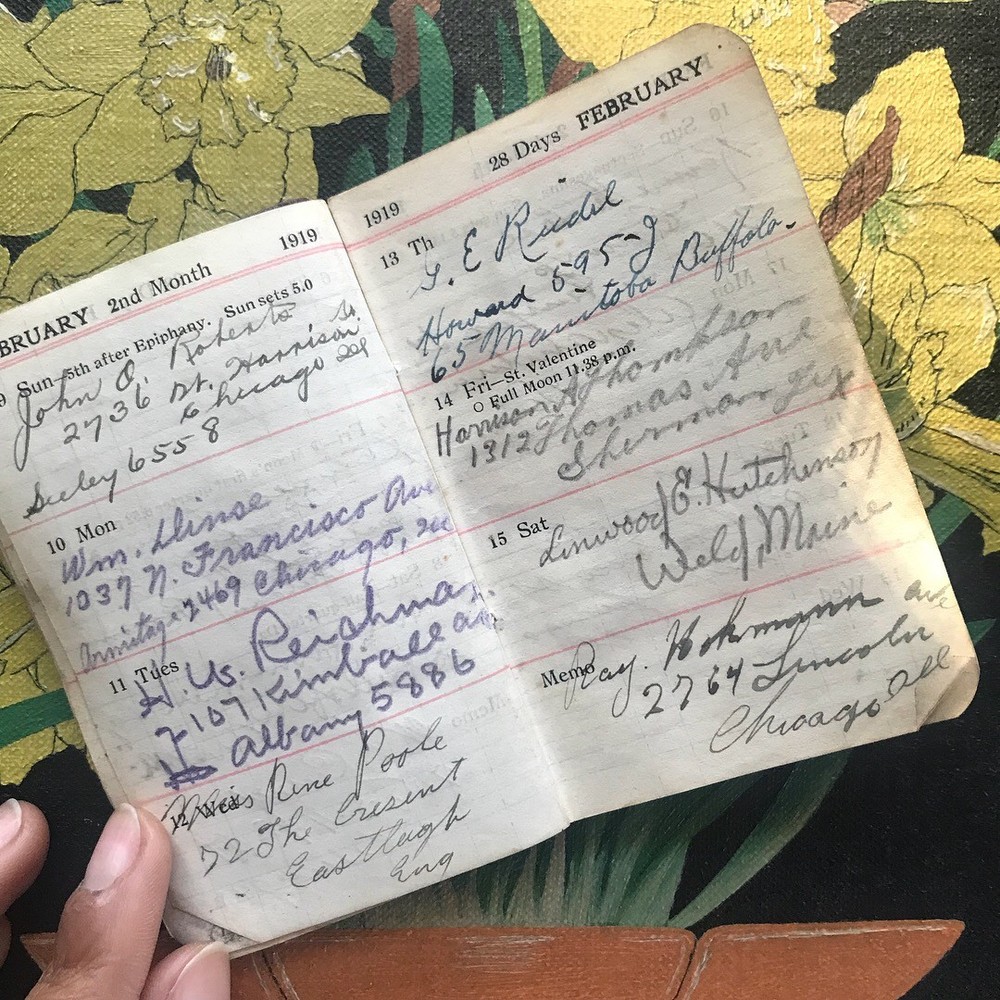 BRUARY 2nd Month 1919
9 Sun—5th after Epiphany. Sun sets 5.0
John O. Roberts
2736 W. Harrison St.
Chicago Ill
Seeley 6558
10 Mon
Wm. Dinse
1037 N. Francisco Ave
Armitage 2469 Chicago, Ill
11 Tues
H. W. Reichman
2107 Kimball av.
Albany 5886
12 Wed
Miss Rene Poole
72 The Cresent
Eastleigh
Eng
1919 28 Days FEBRUARY
13 Th
G. E Riedel
Howard 595-J
65 Manitoba Buffalo.
14 Fri—St. Valentine
O Full Moon 11.38 p.m.
Harrison A Thompson
1312 Thomas Ave
Sherman
15 Sat
Linwood E. Hutchinson
Weld, Maine
Memo
Ray. Hohmann
2764 Lincoln ave
Chicago Ill